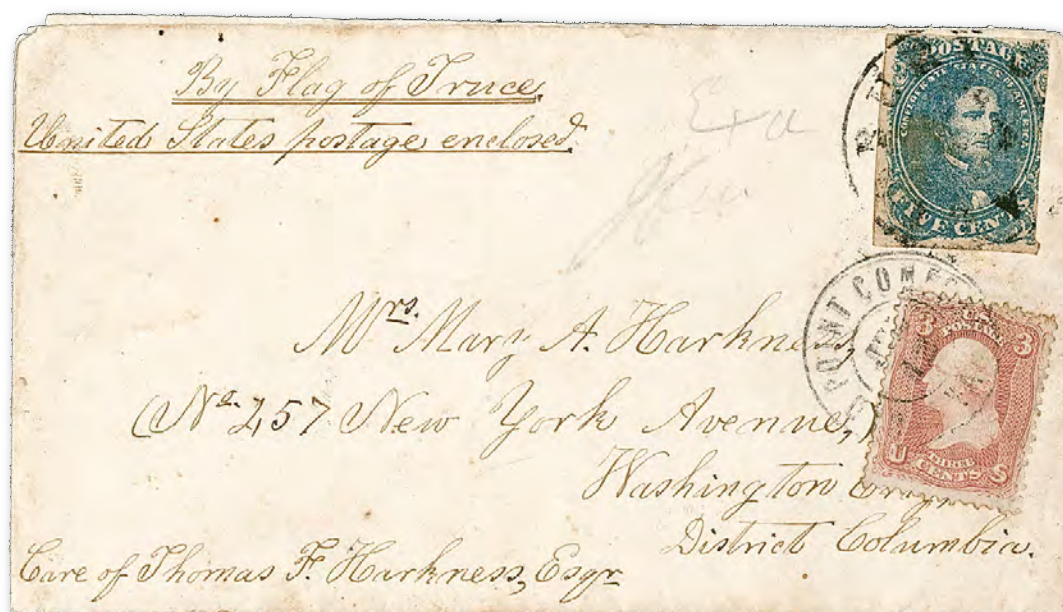 By Flag of Truce,
United States postage enclosed.
POSTAGE
CONFEDERATE STATES OF AMERICA
FIVE CENTS
POINT COMF
VA
3 U.S. 3
POSTAGE
U THREE S
CENTS
Mrs. Mary A. Harkne
(No. 257 New York Avenue,)
Washington
District Columbia.
Care of Thomas F. Harkness, Esqr